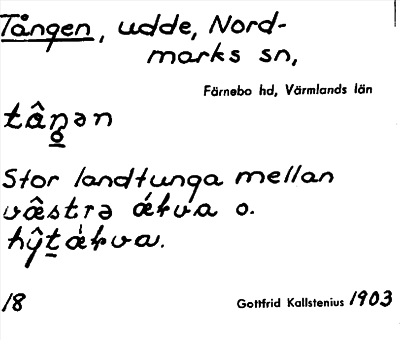 Tången, udde, Nord-
marks sn,
Färnebo hd, Värmlands län
tâŋ̲ən
Stor landtunga mellan
væ̂strə ǽkva o.
hŷt̲ǽkva.
18 Gottfrid Kallstenius 1903